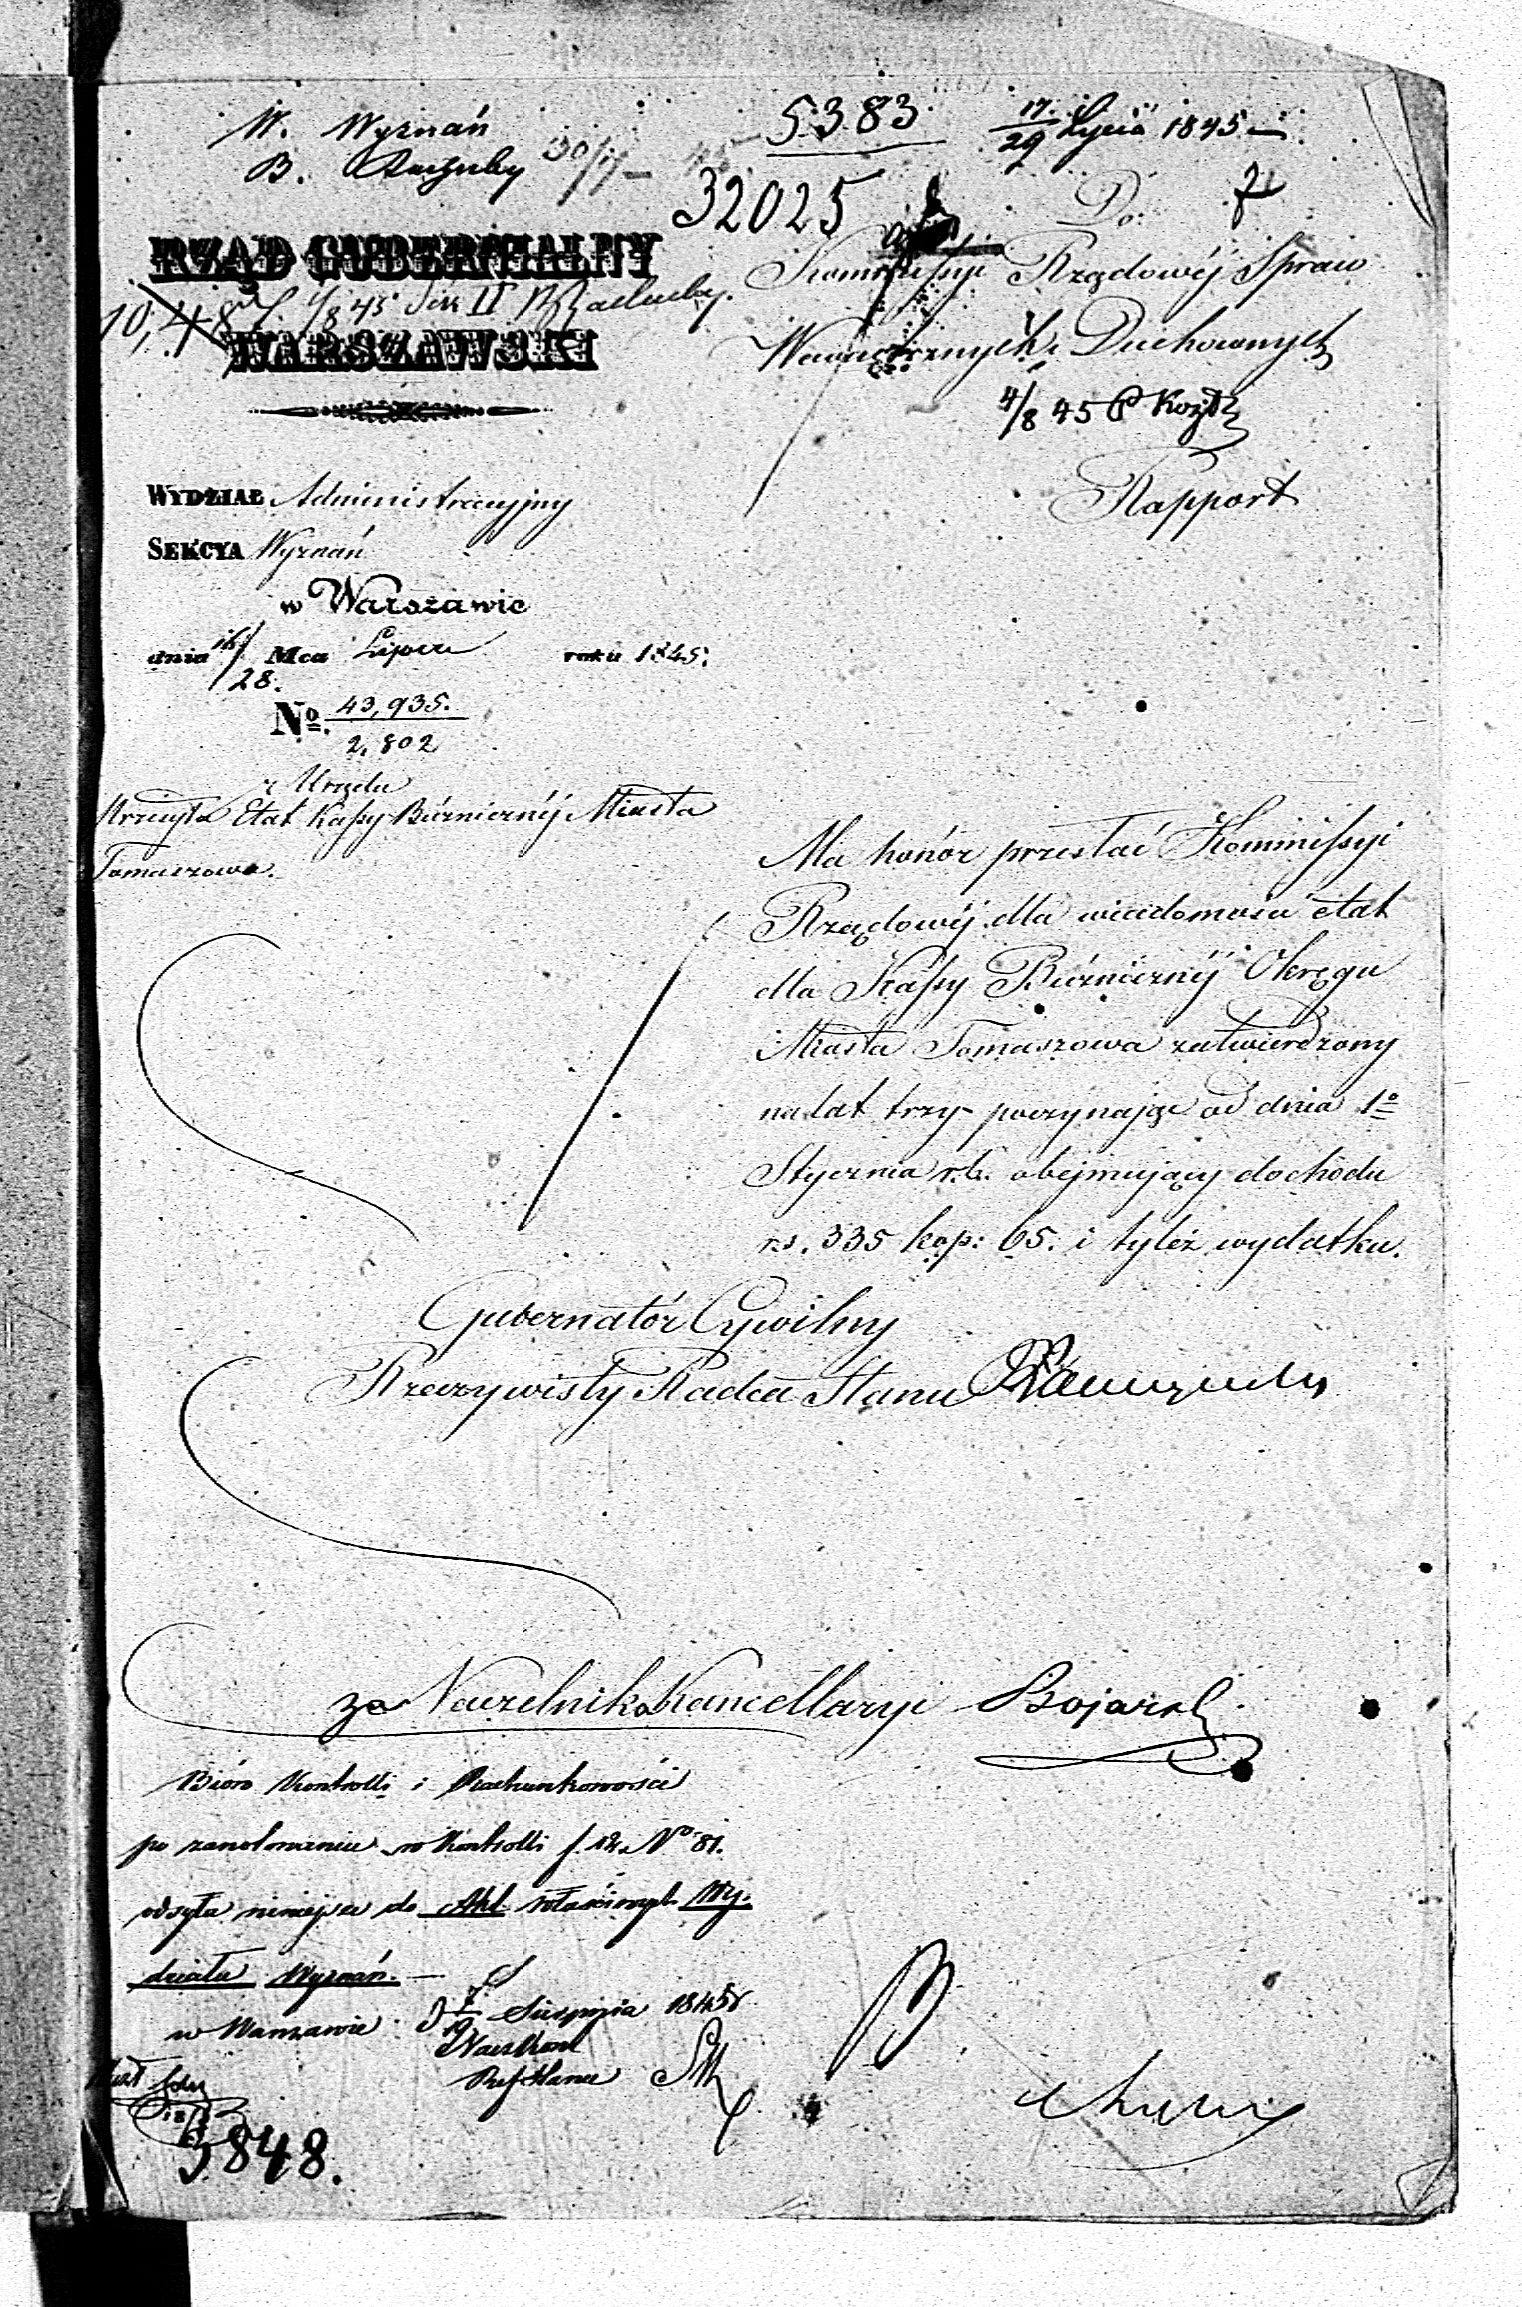 W. Wyznań
B. Rachuby
5383.
17./29 Lipca 1845
32025
Do
RZĄD GUBERNIALNY
WARSZAWSKI
Kommissyi Rządowéj Spraw
Wewnętrznych i Duchownych
4/8 45
Rapport
WYDZIAŁ Administracyjny
SEKCYA Wyznań
w Warszawie
dnia 16/28. Mca Lipca roku 1845.
No. 43,935. / 2,802
z Urzędu
Etat Kassy Bóżnicznéj Miasta
Tomaszowa.
Ma honór przesłać Kommissyi
Rządowéj dla wiadomości etat
dla Kassy Bóżnicznéj Okręgu
Miasta Tomaszowa zatwierdzony
na lat trzy poczynając od dnia 1o
Stycznia r.b. obejmujący dochodu
rs. 335 kop: 65. i tyléż wydatku.
Gubernatór Cywilny
Rzeczywisty Radca Stanu
za Naczelnika Kancellaryi
Bióro Kontrolli i Rachunkowości
po zanotowaniu w Kontrolli f. 12. No 81.
odsyła niniejsze do Akt właściwych Wy-
działu Wyznań.
w Warszawie Sierpnia 1845 r.
Ref Stanu
5848.